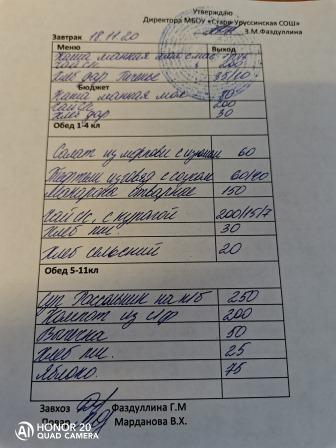 Утверждаю
Директора МБОУ «Старо-Уруссинская СОШ»
З.М.Фаздуллина
Завтрак 18.11.20
Меню Выход
Каша манная мол
чай сл. 200
Хлеб дар. Печенье 35/20
Бюджет
Каша манная мол
чай сл 200
Хлеб дар 30
Обед 1-4 кл
Салат из моркови с изюмом 60
из говяд с соусом
Макароны отварные 150
Чай сл, с курагой 200/15/7
Хлеб пш. 30
Хлеб сельский 20
Обед 5-11кл
Суп Рассольник на к/б 250
Компот из с/ф 200
50
Хлеб пш. 25
Яблоко. 75
Завхоз Фаздуллина Г.М
Повар Марданова В.Х.
HONOR 20
QUAD CAMERA